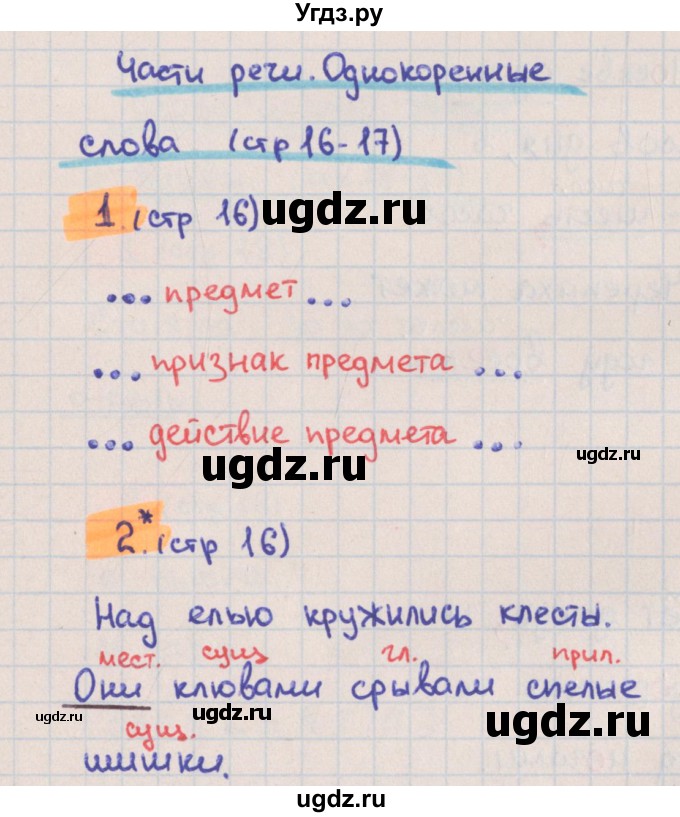 Угдз.ру
Части речи. Однокоренные
слова (стр 16-17)
1. (стр 16) ugdz.ru
... предмет ...
... признак предмета ...
... действие предмета ...
ugdz.ru ugdz.ru
2.* (стр 16)
Над елью кружились клесты.
мест. сущ гл. прил.
Они клювами срывали спелые
ugdz.ru ugdz.ru ugdz.ru
сущ.
шишки.
ugdz.ru